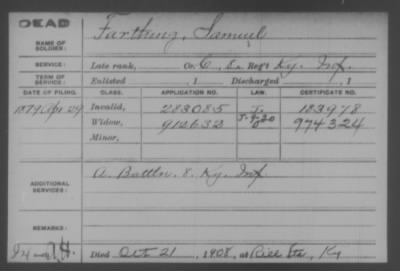 DEAD
NAME OF SOLDIER: Farthing, Samuel
SERVICE: Late rank, Co. C, 8 Reg't Ky. Inf.
TERM OF SERVICE: Enlisted , 1 Discharged , 1
DATE OF FILING. CLASS. APPLICATION NO. LAW. CERTIFICATE NO.
1879 Apr 29 Invalid, 283085 183978
Widow, 912632 974324
Minor,
ADDITIONAL SERVICES: A. Battln. 8. Ky. Inf
REMARKS:
Died Oct 21, 1908, at Rice Sta, Ky